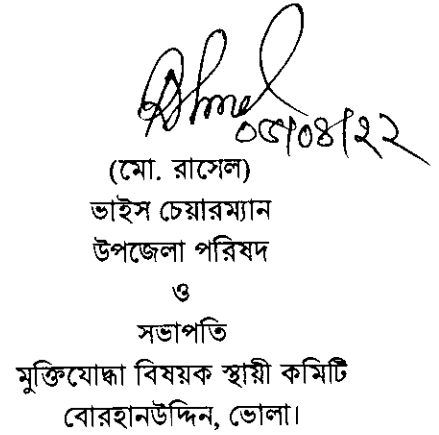 ০৫/০৪/২২
(মো. রাসেল)
ভাইস চেয়ারম্যান
উপজেলা পরিষদ
ও
সভাপতি
মুক্তিযোদ্ধা বিষয়ক স্থায়ী কমিটি
বোরহানউদ্দিন, ভোলা।